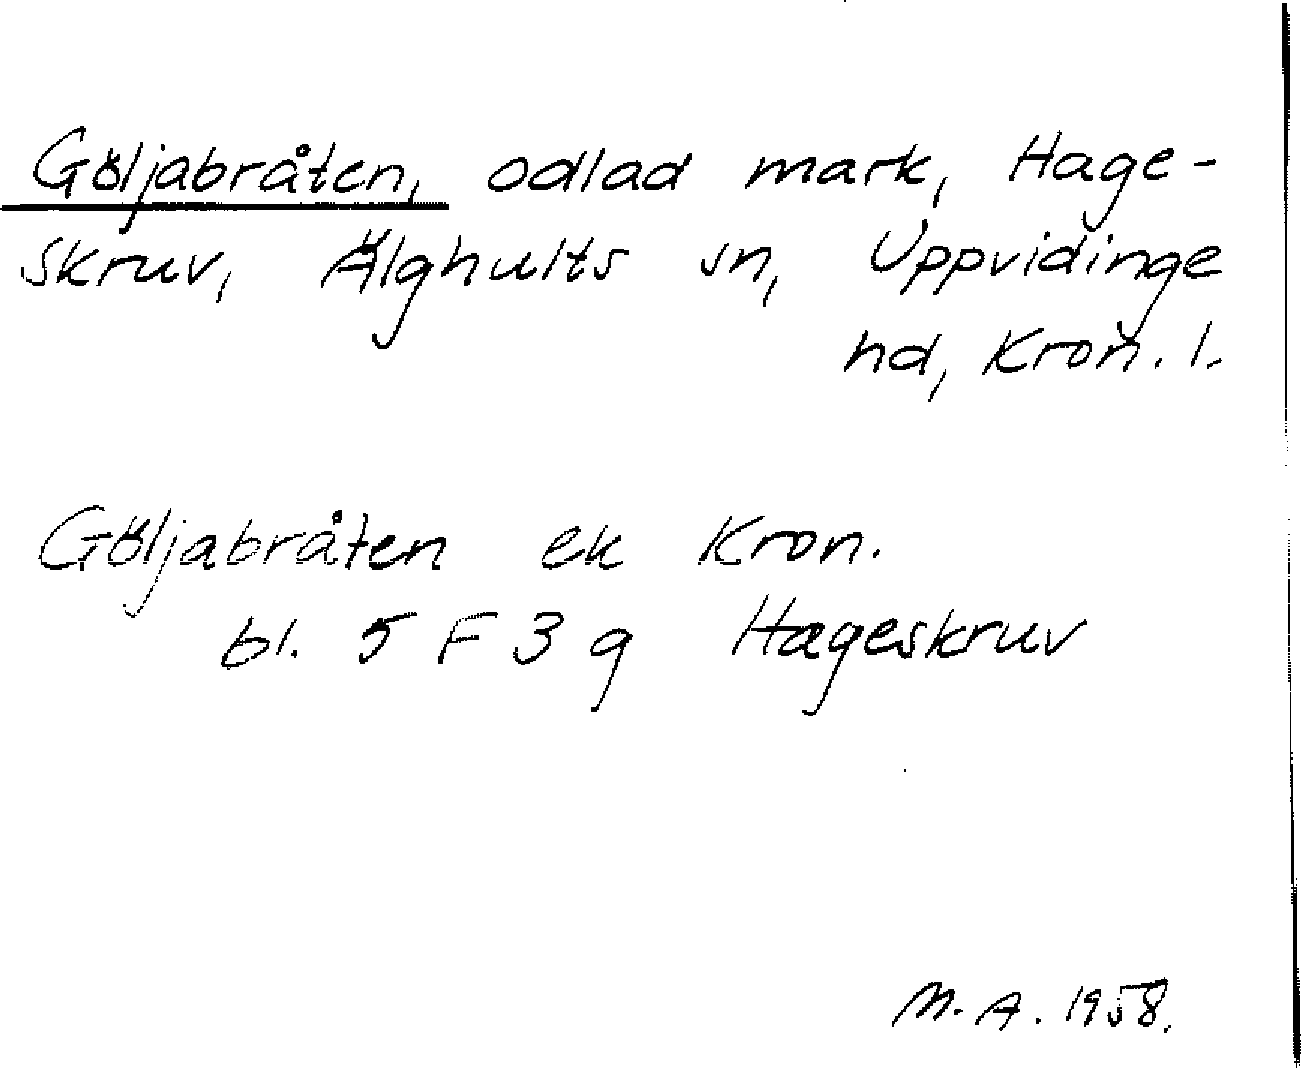 Göljabråten, odlad mark, Hage-
skruv, Älghults sn, Uppvidinge
hd, Kron. l.
Göljabråten ek Kron.
bl. 5 F 3 g Hageskruv
M. A. 1958.